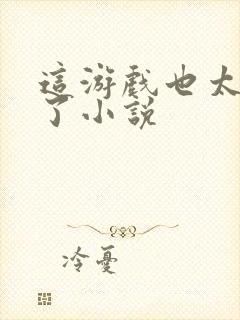 這游戲也太
了小說
冷憂